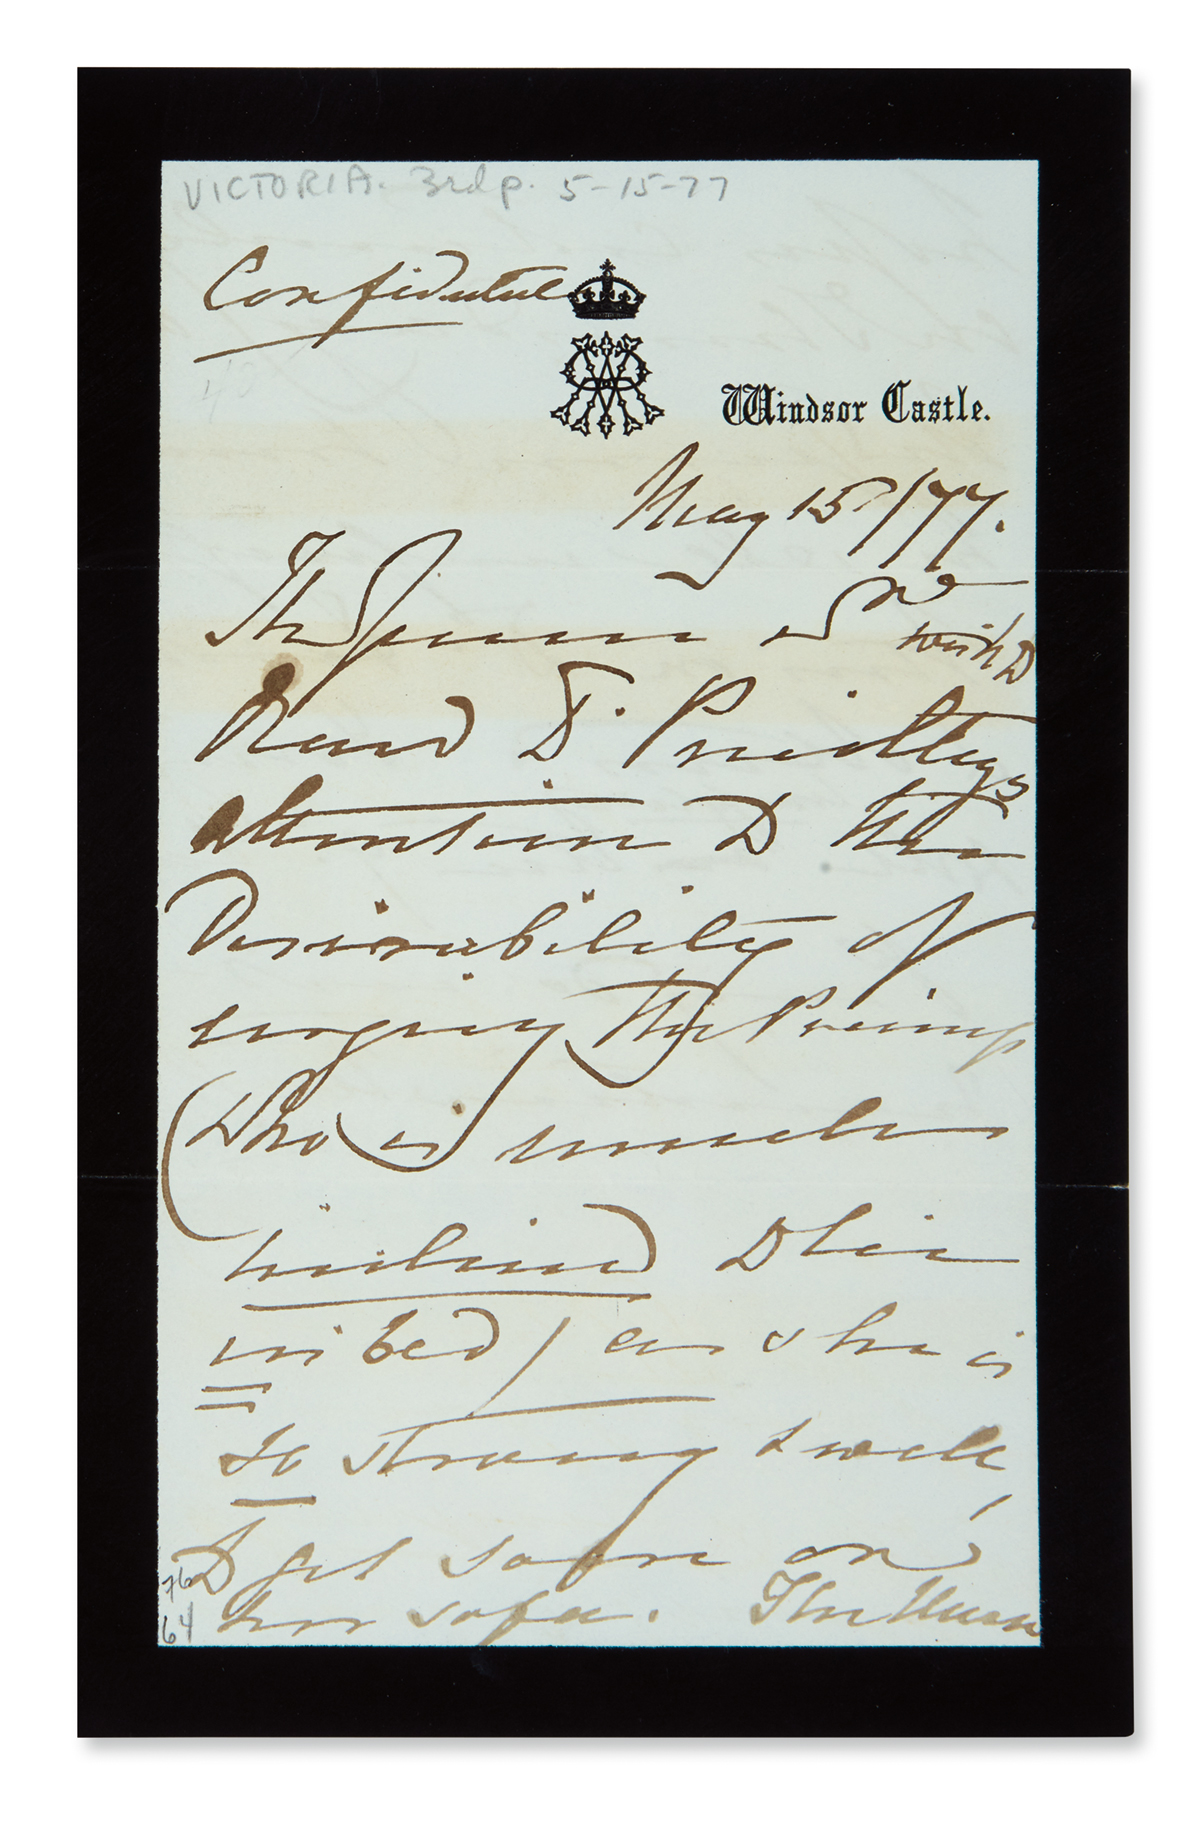 VICTORIA. 3rd p. 5-15-77
Confidential
Windsor Castle.
May 15/77.
The Queen
wish to
Dr. Priestley's
attention to the
Desirability of
urging the Princess
(who is much
inclined to lie
in bed) as she is
so strong & well,
to get soon on
her sofa. The Queen
76
64